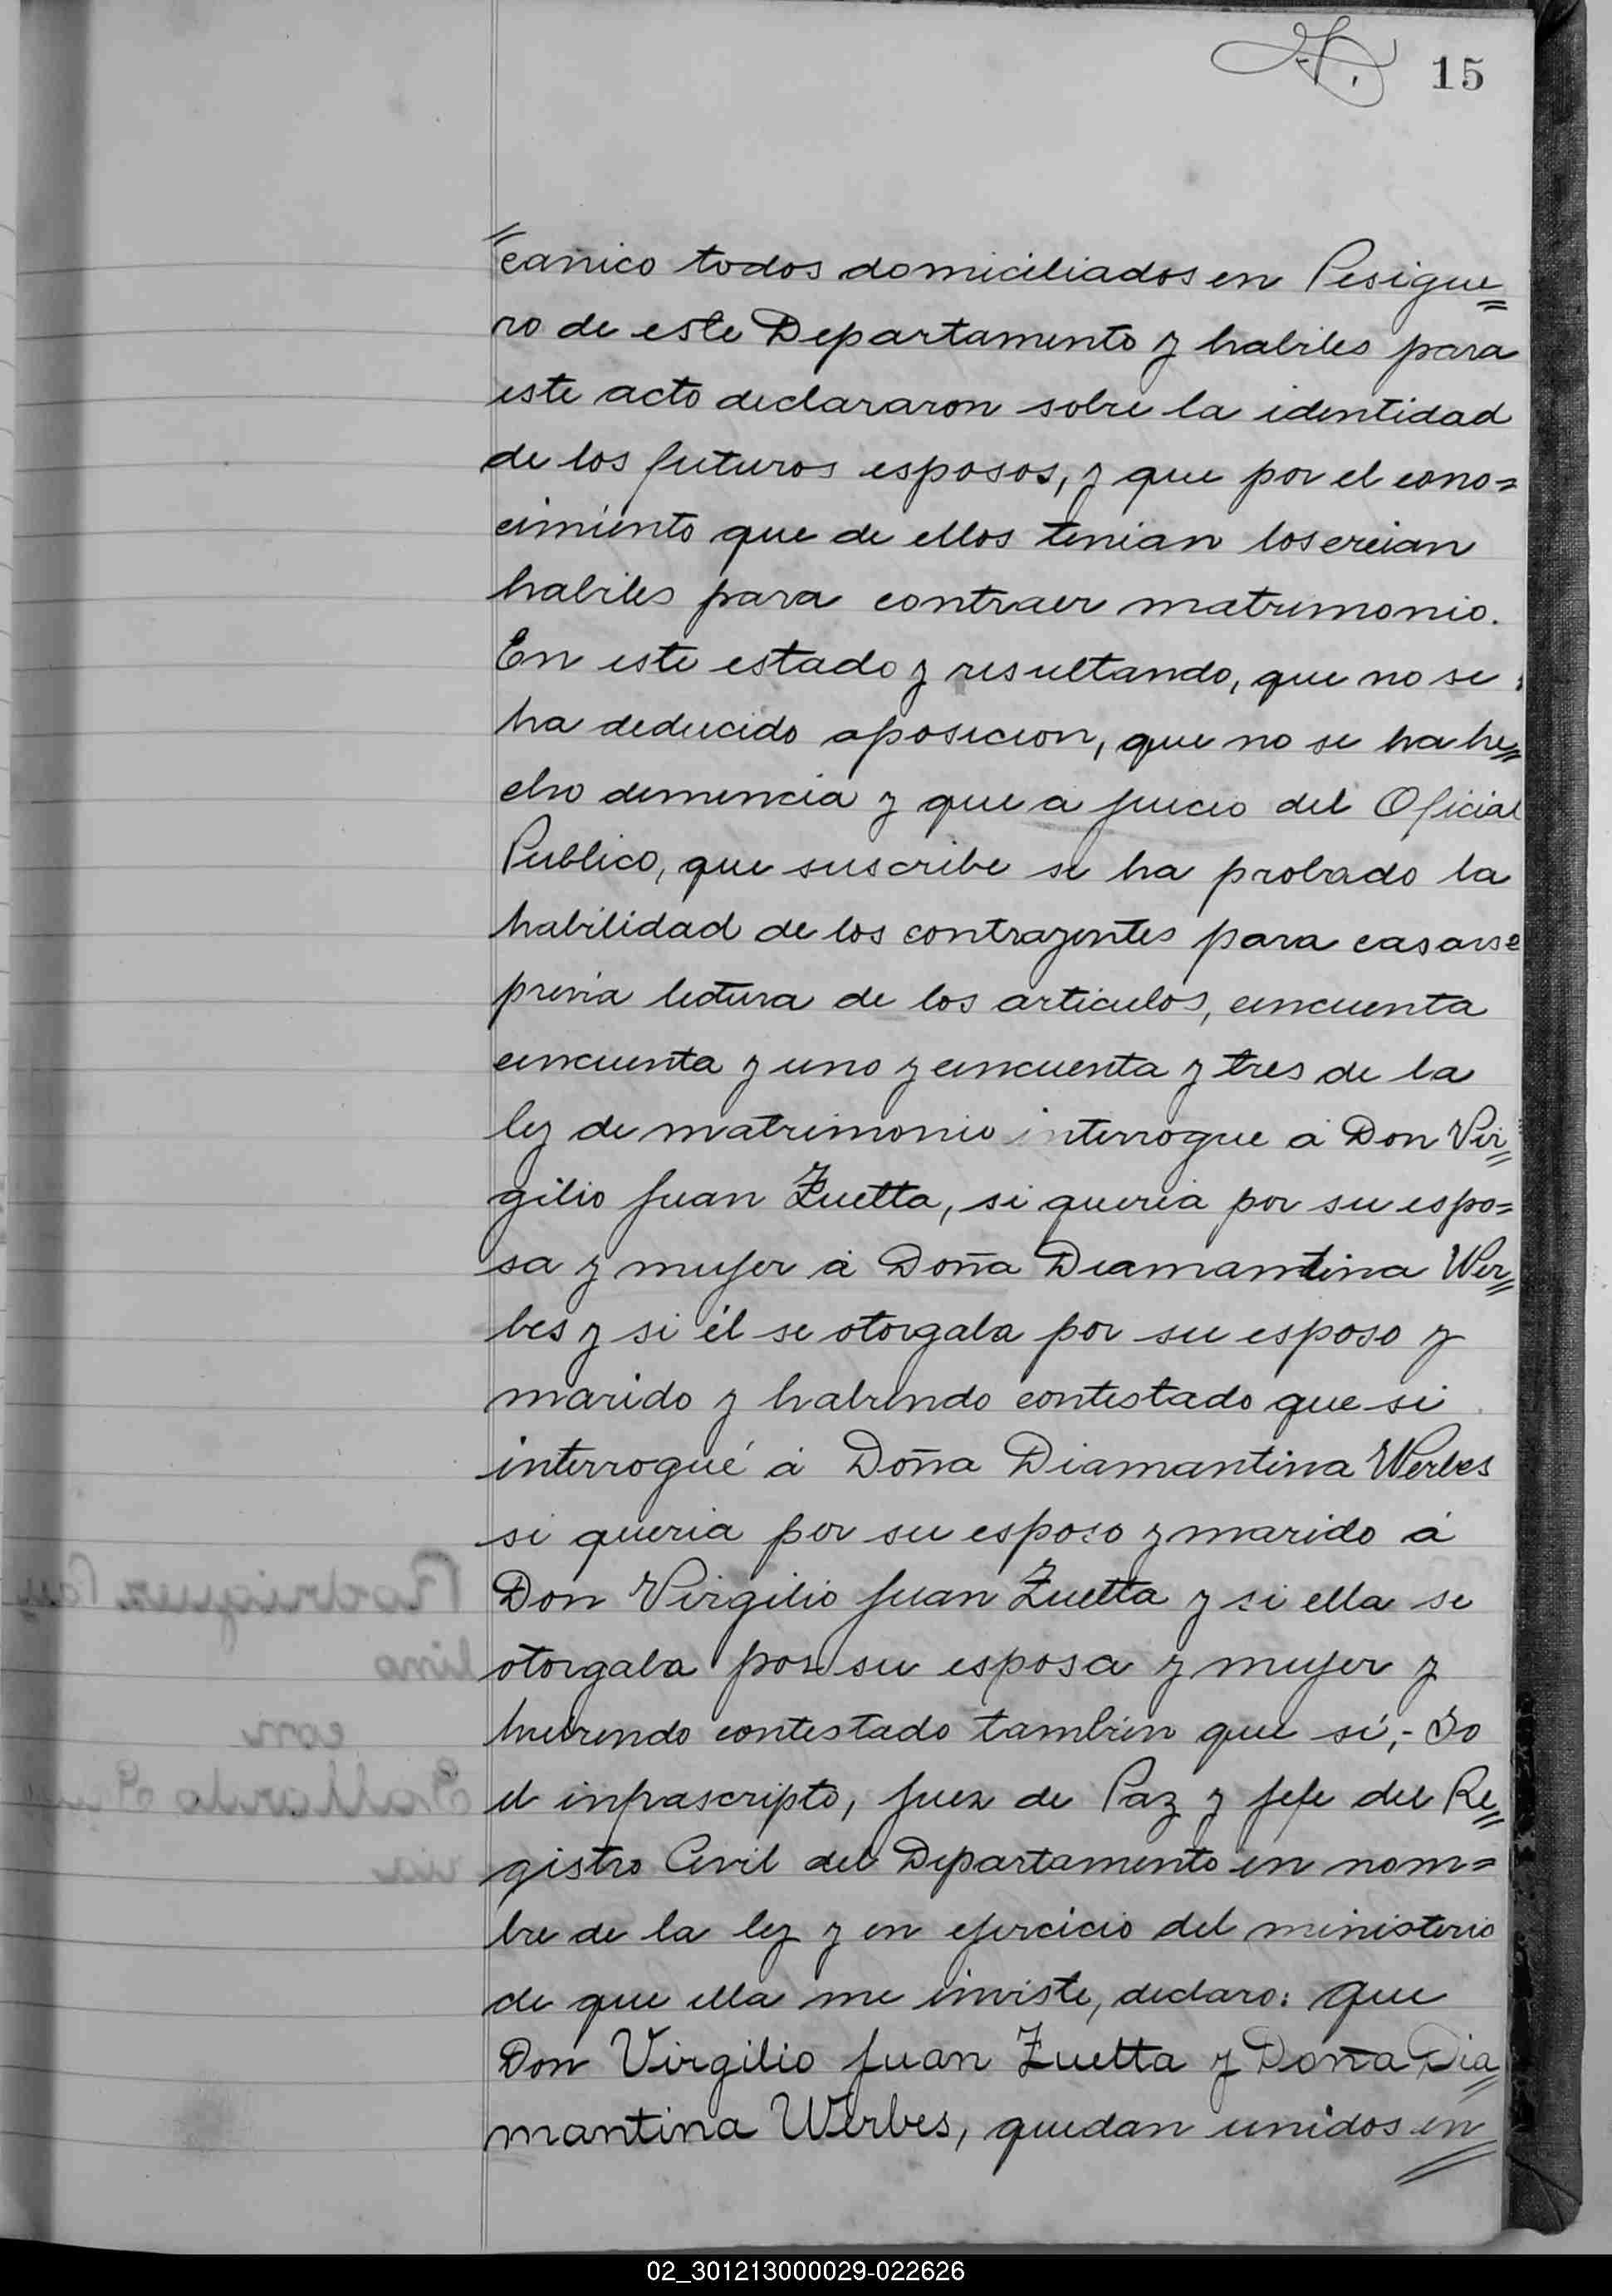 15
"canico todos domiciliados en Pesigue=
ro de este Departamento y habiles para
este acto declararon sobre la identidad
de los futuros esposos, y que por el cono=
cimiento que de ellos tenian los creian
habiles para contraer matrimonio.
En este estado y resultando, que no se
ha deducido oposicion, que no se ha he=
cho denuncia y que a juicio del Oficial
Publico, que suscribe se ha probado la
habilidad de los contrayentes para casarse
previa lectura de los articulos, cincuenta
cincuenta y uno y cincuenta y tres de la
ley de matrimonio interrogue á Don Vir=
gilio Juan Zuetta, si queria por su espo=
sa y mujer á Doña Diamantina Wer=
bes y si él se otorgaba por su esposo y
marido y habiendo contestado que si
interrogué á Doña Diamantina Werbes
si queria por su esposo y marido á
Don Virgilio Juan Zuetta y si ella se
otorgaba por su esposa y mujer y
hubiendo contestado tambien que sí,- Yo
el infrascripto, Juez de Paz y Jefe del Re=
gistro Civil del Departamento en nom=
bre de la ley y en ejercicio del ministerio
de que ella me inviste, declaro: que
Don Virgilio Juan Zuetta y Doña Dia=
mantina Werbes, quedan unidos en
02_301213000029-022626